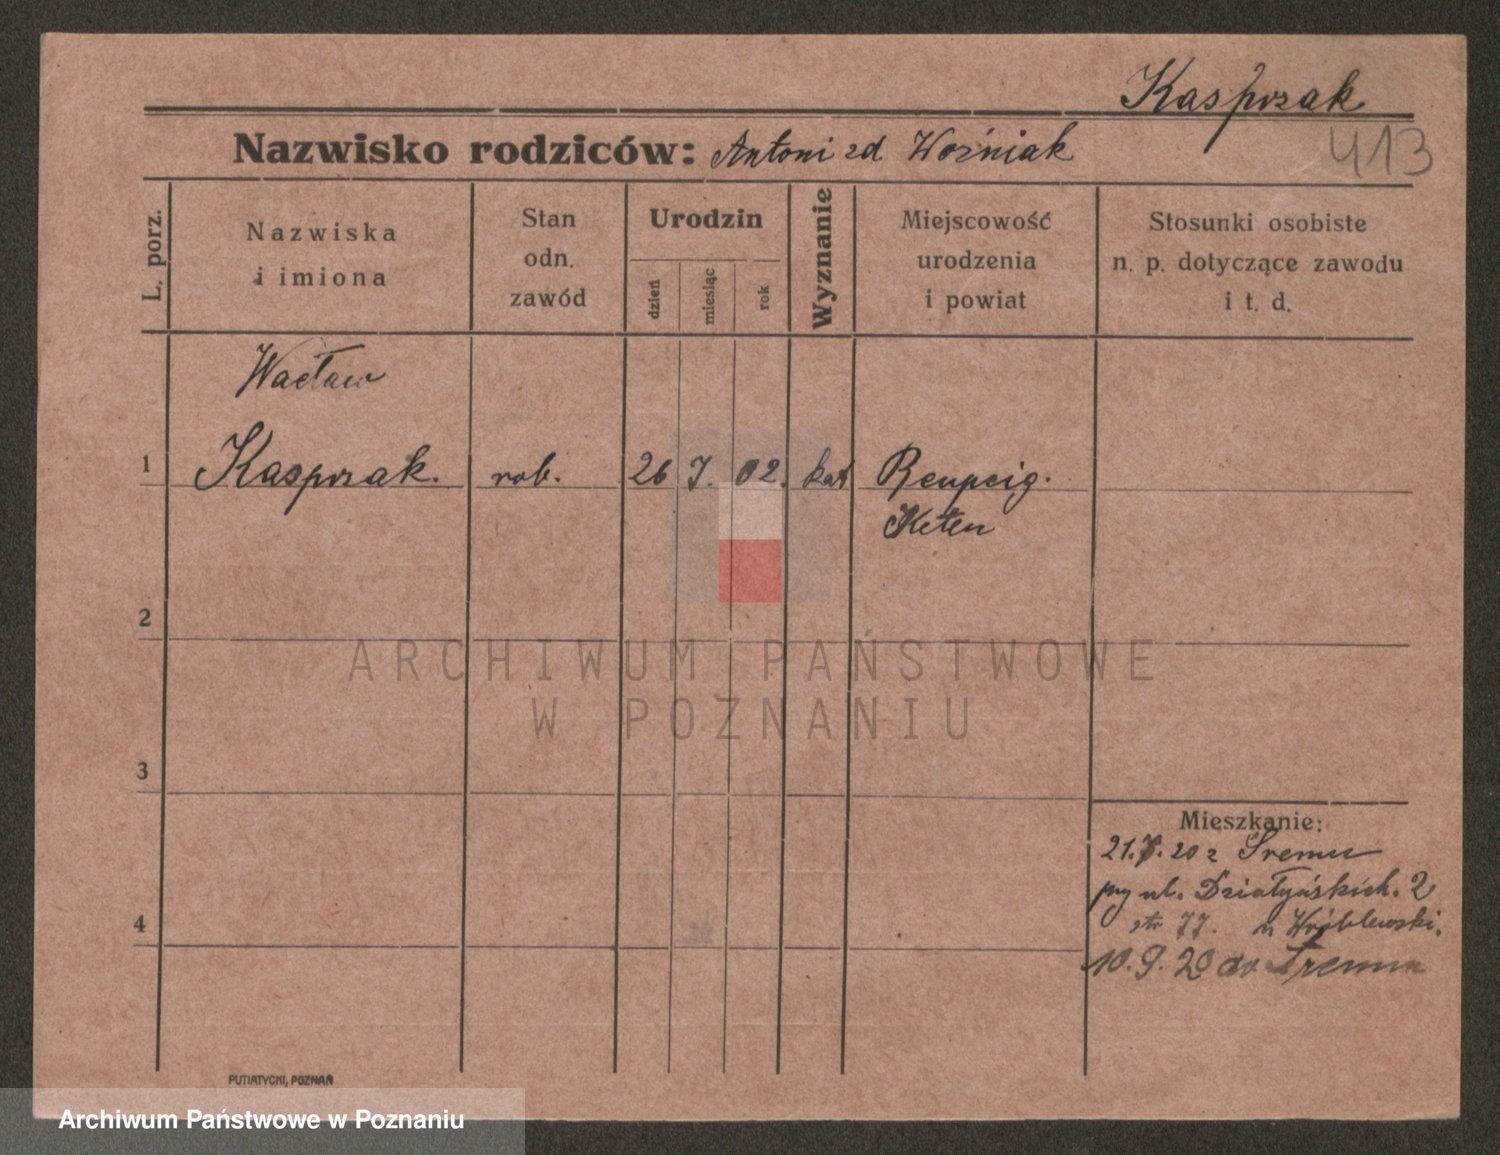 Kasprzak
413
Nazwisko rodziców: Antoni zd Woźniak
L. porz.
Nazwiska
i imiona
Stan
odn.
zawód
Urodzin
dzień
miesiąc
rok
Wyznanie
Miejscowość
urodzenia
i powiat
Stosunki osobiste
n. p. dotyczące zawodu
i t. d.
Wacław
1 Kasprzak. rob. 26 7. 02. kat
2
ARCHIWUM PAŃSTWOWE
W POZNANIU
3
Mieszkanie:
20 z Śremu
ul. Działyńskich. 2
4
u Wróblewski.
10.9.20 do Śremu
PUTIATYCKI, POZNAŃ
Archiwum Państwowe w Poznaniu